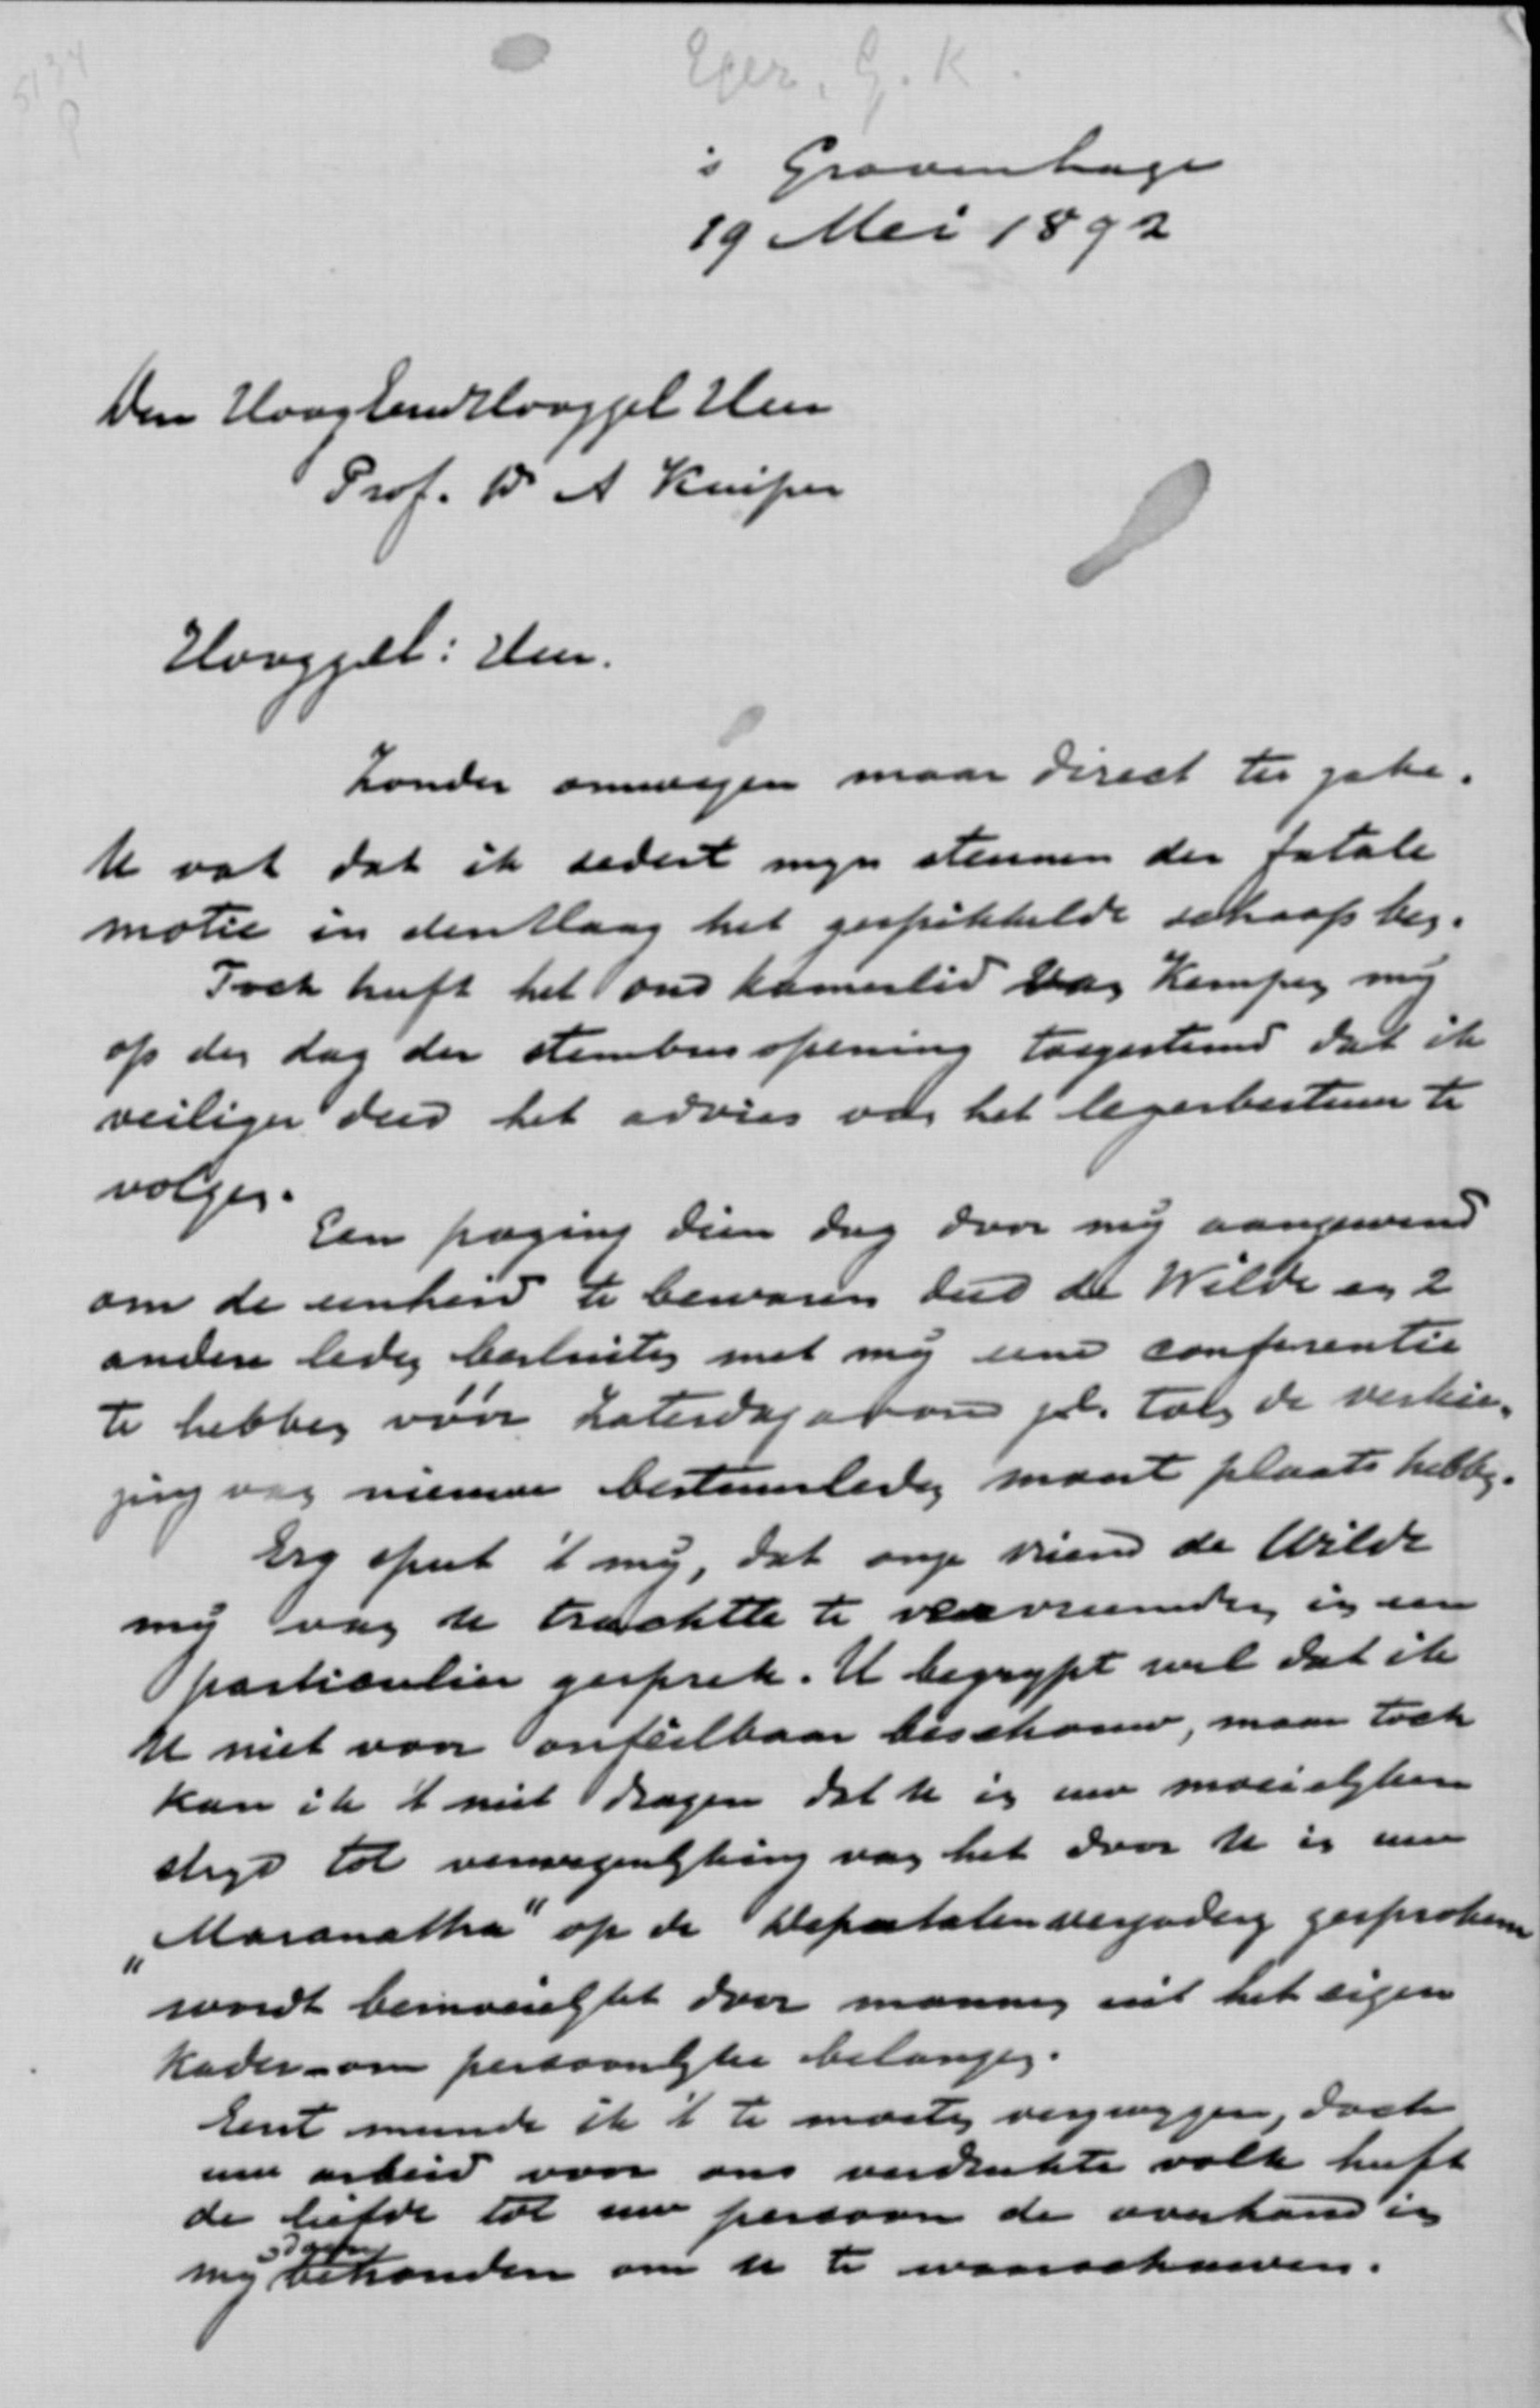 5134
P
Eger, G. K.
's Gravenhage
19 Mei 1892
Den HoogEerwHooggel Heer
Prof. Dr A Kuiper
Hooggel: Heer.
Zonder omwegen maar direct ter zake.
U wat dat ik sedert myn stemmen der fatale
motie in den Haag het gespikkelde schaap ben.
Toch heeft het oud kamerlid van Kempen mij
op den dag der stembusopening toegestemd dat ik
veiliger deed het advies van het legerbestuur te
volgen.
Een poging dien dag door mij aangewend
om de eenheid te bewaren deed de Wilde en 2
andere leden besluiten met mij eene conferentie
te hebben vóór Zaterdagavond jl. toen de verkie-
zing van nieuwe bestuursleden moest plaats hebben.
Erg speet 't mij, dat onze vriend de Wilde
mij van U trachtte te vervreemden in een
particulier gesprek. U begrypt wel dat ik
U niet voor onfeilbaar beschouw, maar toch
kan ik 't niet dragen dat U in uw moeielyken
stryd tot verwezenlyking van het door U in uw
„Maranatha" op de Deputatenvergadering gesproken
wordt bemoeielykt door mannen uit het eigen
kader om persoonlyke belangen.
Eerst meende ik 't te moeten verzwygen, doch
uw arbeid voor ons verdrukte volk heeft
de liefde tot uw persoon de overhand in
mij doen behouden om U te waarschuwen.